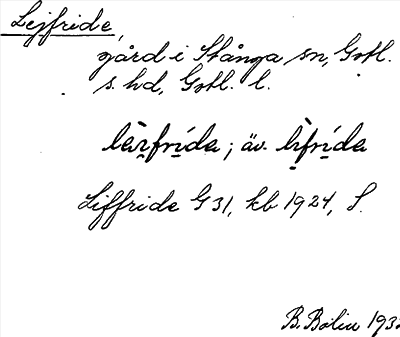 Lejfride,
gård i Stånga sn, Gotl.
s. hd, Gotl. l.
läi̯frida; äv. lifrida
Liffride G 31, kb 1924, S.
B. Bolin 1932